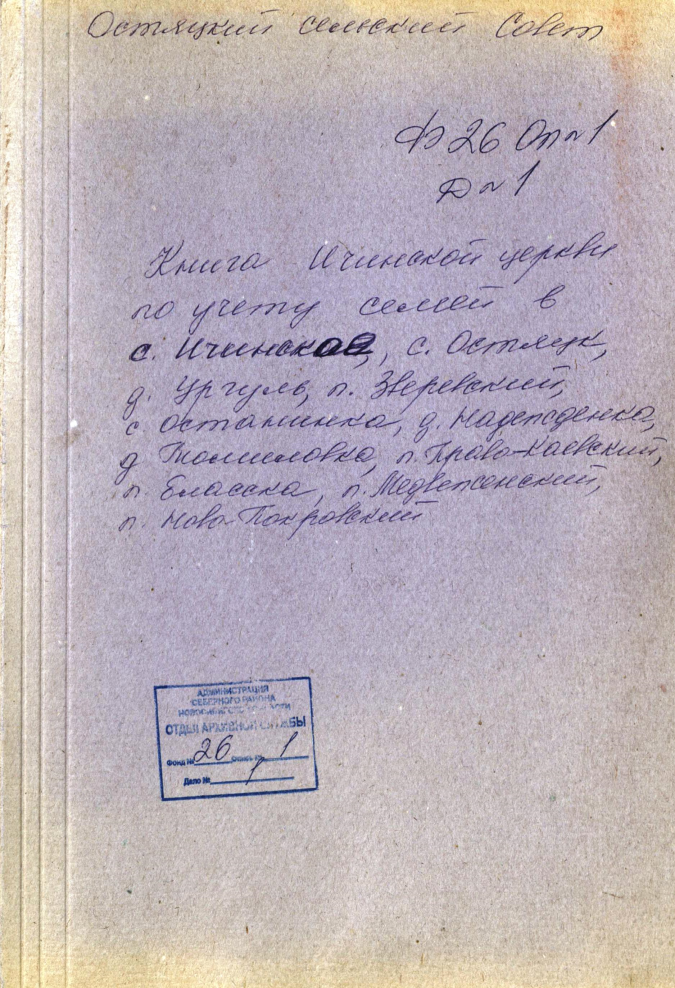 Остяцкий сельский Совет
Ф 26 Оп ~ 1
Д ~ 1
Книга Ичинской церкви
по учету семей в
с. Ичинское, с. Остяцк,
д. Ургуль, п. Зверевский,
с Останинка, д. Надежденка,
д Томиловка, п. Право-Каевский,
п. Еласска, п. Медвеженский,
п. Ново-Покровский
АДМИНИСТРАЦИЯ
СЕВЕРНОГО РАЙОНА
НОВОСИБИРСКОЙ ОБЛАСТИ
ОТДЕЛ АРХИВНОЙ СЛУЖБЫ
Фонд № 26 Опись № 1
Дело № 1